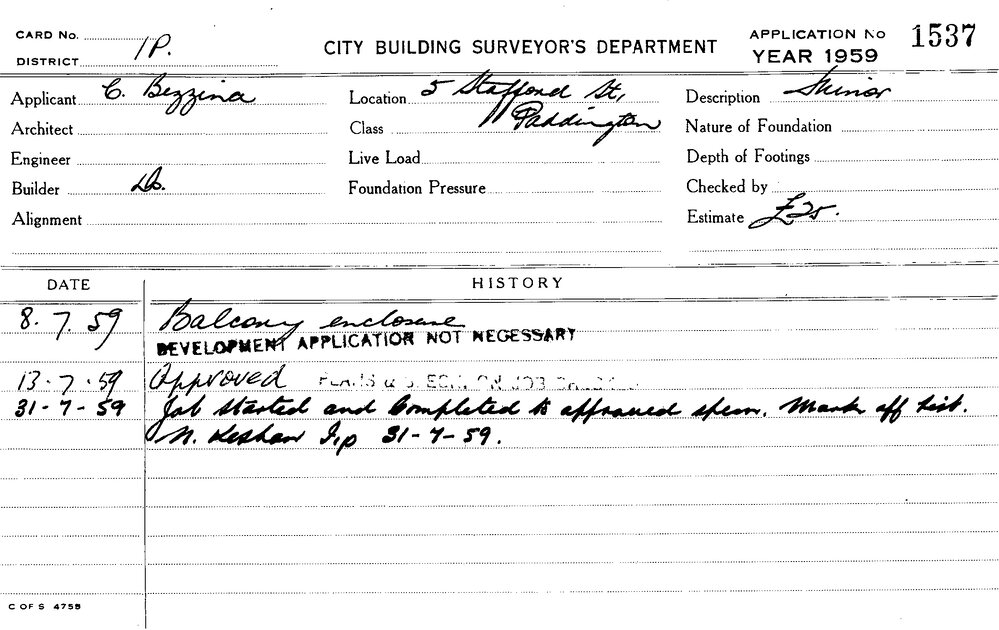 CARD No.
DISTRICT 1P.
CITY BUILDING SURVEYOR'S DEPARTMENT
APPLICATION No 1537
YEAR 1959
Applicant C. Bezzina
Location 5 Stafford St,
Description Minor
Architect
Class Paddington
Nature of Foundation
Engineer
Live Load
Depth of Footings
Builder Do.
Foundation Pressure
Checked by
Alignment
Estimate £25.
DATE HISTORY
8.7.59 Balcony enclosure
DEVELOPMENT APPLICATION NOT NECESSARY
13.7.59 Approved PLANS & ON JOB
31-7-59 Job started and Completed to approved specn. Mark off list.
N. 31-7-59.
C OF S 4755